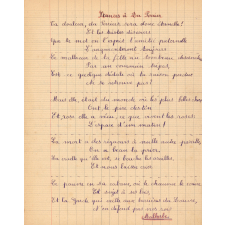 Stances à Du Perier
Ta douleur, du Périer sera donc éternelle!
Et les tristes discours
Que te met en l'esprit l'amitié paternelle
L'augmenteront toujours
Le malheur de ta fille au tombeau descendue
Par un commun trépas,
Est ce quelque dédale où ta raison perdue
Ne se retrouve pas
Mais elle était du monde où les plus belles choses
Ont le pire destin
Et rose elle a vécu, ce que vivent les roses
L'espace d'un matin!
La mort a des rigueurs à nulle autre pareilles,
On a beau la prier,
La cruelle qu'elle est, se bouche les oreilles,
Et nous laisse crier
Le pauvre en sa cabane, où le chaume le couvre
Est sujet à ses lois,
Et la Garde qui veille aux barrières du Louvre,
N'en défend pas nos rois
Malherbe